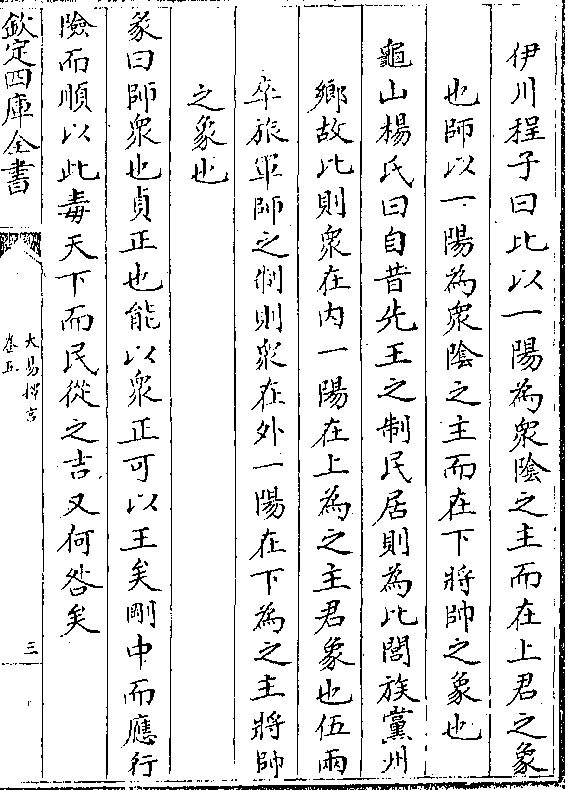 伊川程子曰比以一陽為衆陰之主而在上君之象
也師以一陽為衆陰之主而在下將帥之象也
龜山楊氏曰自昔先王之制民居則為比閭族黨州
鄉故比則衆在内一陽在上為之主君象也伍兩
卒旅軍師之制則衆在外一陽在下為之主將帥
之象也
彖曰師衆也貞正也能以衆正可以王矣剛中而應行
險而順以此毒天下而民從之吉又何咎矣
欽定四庫全書
大易擇言
卷五
三